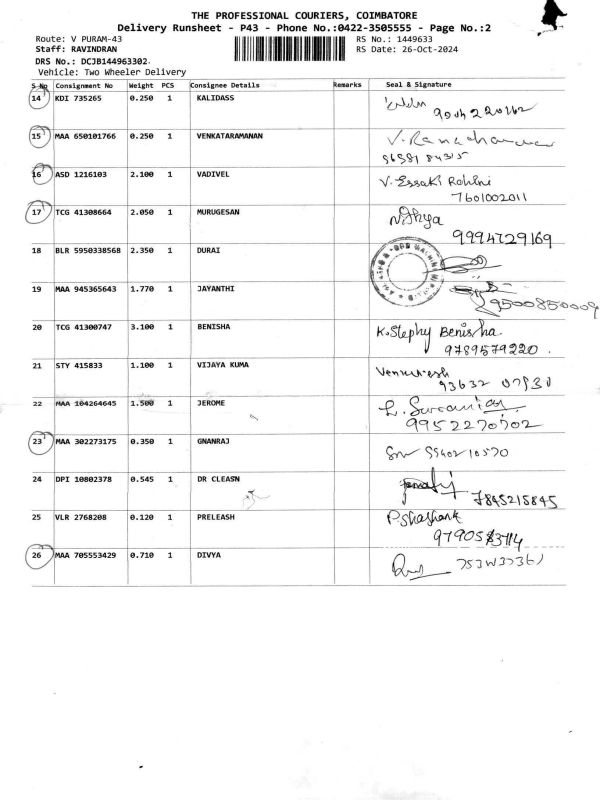 THE PROFESSIONAL COURIERS, COIMBATORE
Delivery Runsheet - P43 - Phone No.:0422-3505555 - Page No.:2
Route: V PURAM-43 RS No.: 1449633
Staff: RAVINDRAN RS Date: 26-Oct-2024
DRS No.: DCJB144963302
Vehicle: Two Wheeler Delivery
S No Consignment No Weight PCS Consignee Details Remarks Seal & Signature
14 KDI 735265 0.250 1 KALIDASS
15 MAA 650101766 0.250 1 VENKATARAMANAN
16 ASD 1216103 2.100 1 VADIVEL V. Essaki Rohini
7601002011
17 TCG 41308664 2.050 1 MURUGESAN Nithya
9994729169
18 BLR 5950338568 2.350 1 DURAI
19 MAA 945365643 1.770 1 JAYANTHI 9500850009
20 TCG 41300747 3.100 1 BENISHA K. Stephy Benisha.
9789579220.
21 STY 415833 1.100 1 VIJAYA KUMA
22 MAA 104264645 1.500 1 JEROME
9952270702
23 MAA 302273175 0.350 1 GNANRAJ
24 DPI 10802378 0.545 1 DR CLEASN 7845215845
25 VLR 2768208 0.120 1 PRELEASH P. Shashank
26 MAA 705553429 0.710 1 DIVYA